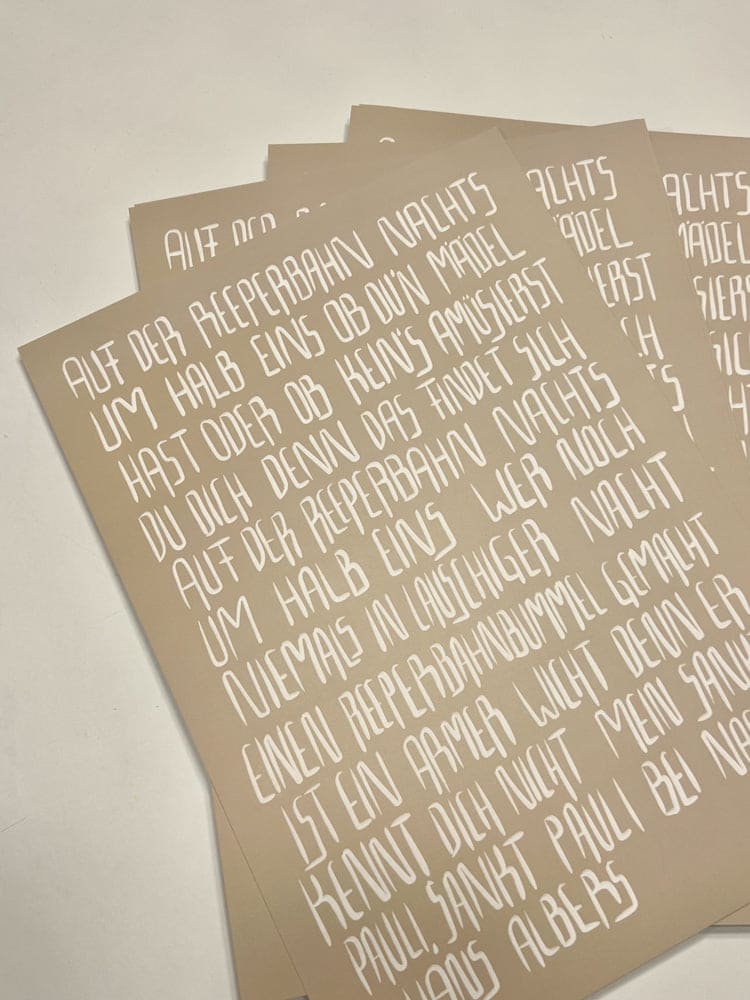 AUF DER REEPERBAHN NACHTS
UM HALB EINS OB DU'N MÄDEL
HAST ODER OB KEIN'S AMÜSIERST
DU DICH DENN DAS FINDET SICH
AUF DER REEPERBAHN NACHTS
UM HALB EINS WER NOCH
NIEMALS IN LAUSCHIGER NACHT
EINEN REEPERBAHNBUMMEL GEMACHT
IST EIN ARMER WICHT DENN ER
KENNT DICH NICHT MEIN SANK
PAULI, SANKT PAULI BEI NA
HANS ALBERS
AUF DER
ACHTS
ÄDEL
IERST
CH
TS
ACHTS
MÄDEL
SIERS
SIC